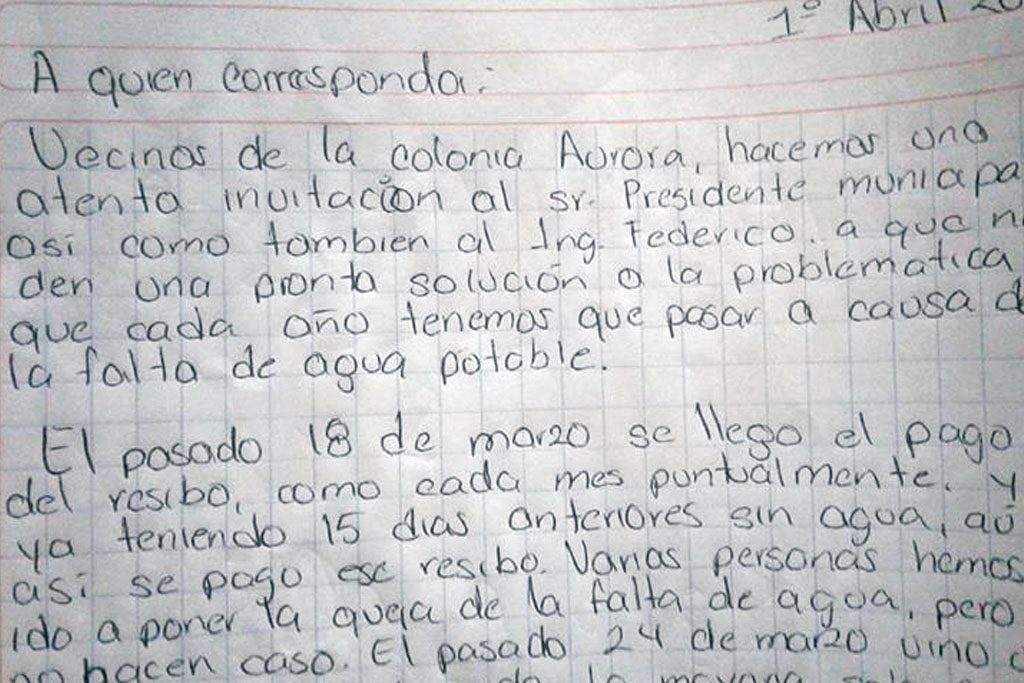 1º Abril 20
A quien corresponda:
Vecinos de la colonia Aurora, hacemos una
atenta invitación al sr. Presidente municipa
asi como tambien al Ing. Federico, a que n
den una pronta solución a la problematica
que cada año tenemos que pasar a causa d
la falta de agua potable.
El pasado 18 de marzo se llego el pago
del resibo, como cada mes puntualmente. y
ya teniendo 15 dias anteriores sin agua, aú
asi se pago ese resibo. Varias personas hemos
ido a poner la queja de la falta de agua, pero
no hacen caso. El pasado 24 de marzo vino
la mayoria